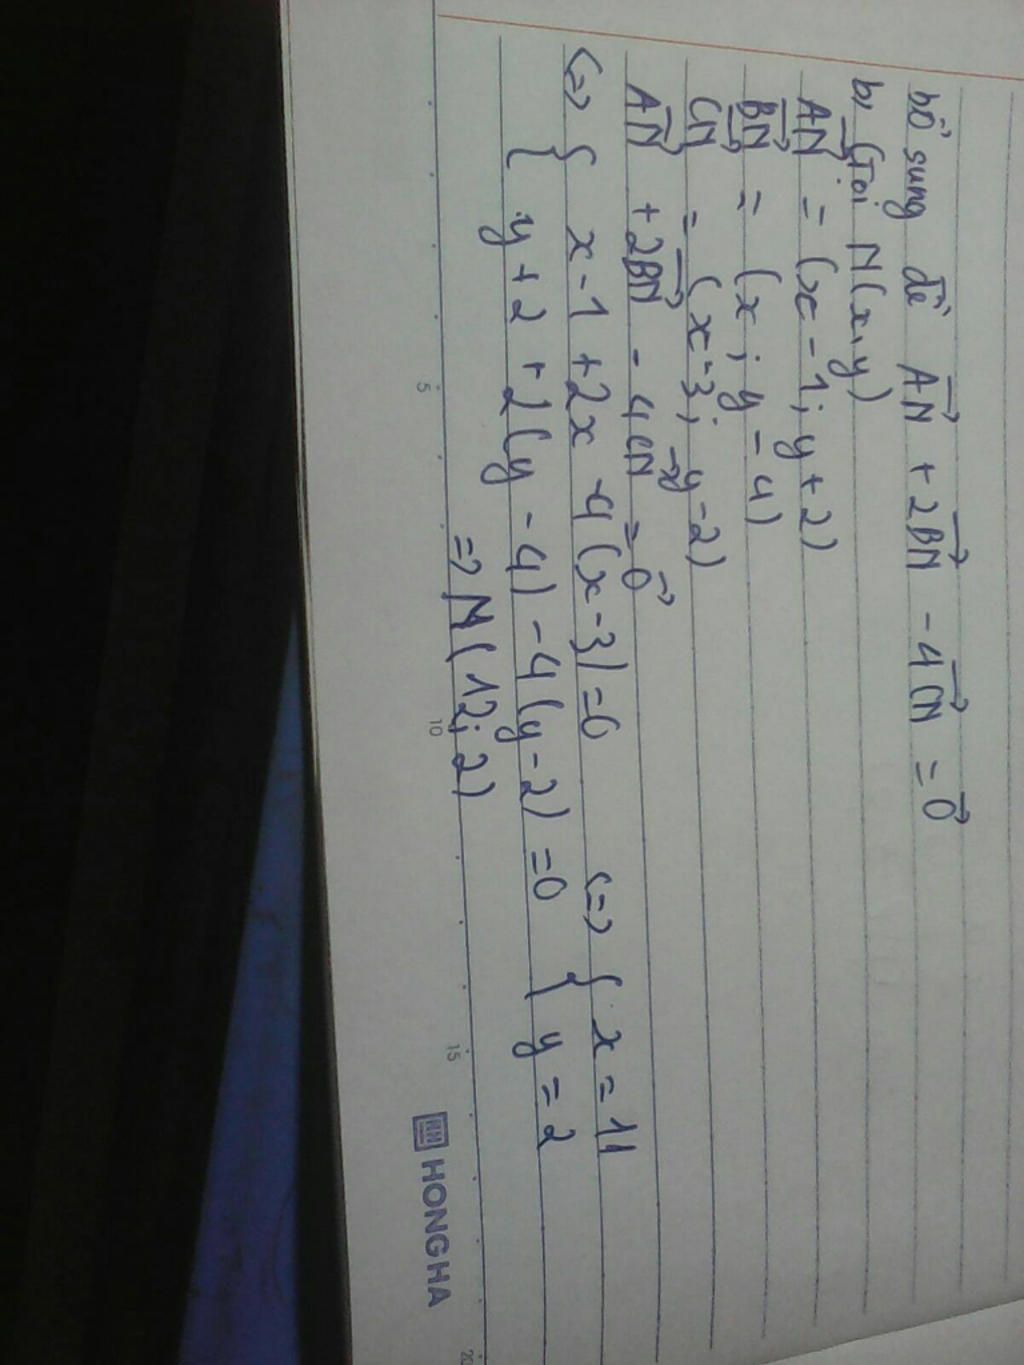 bổ sung đề AN + 2BN - 4CN = 0
b, Gọi N(x,y)
AN = (x-1; y+2)
BN = (x; y-4)
CN = (x-3; y-2)
AN + 2BN - 4CN = 0
<=> { x-1+2x-4(x-3)=0 <=> { x = 11
{ y+2+2(y-4)-4(y-2)=0 { y = 2
=> N(12; 2)
5 10 15 20
HONG HA